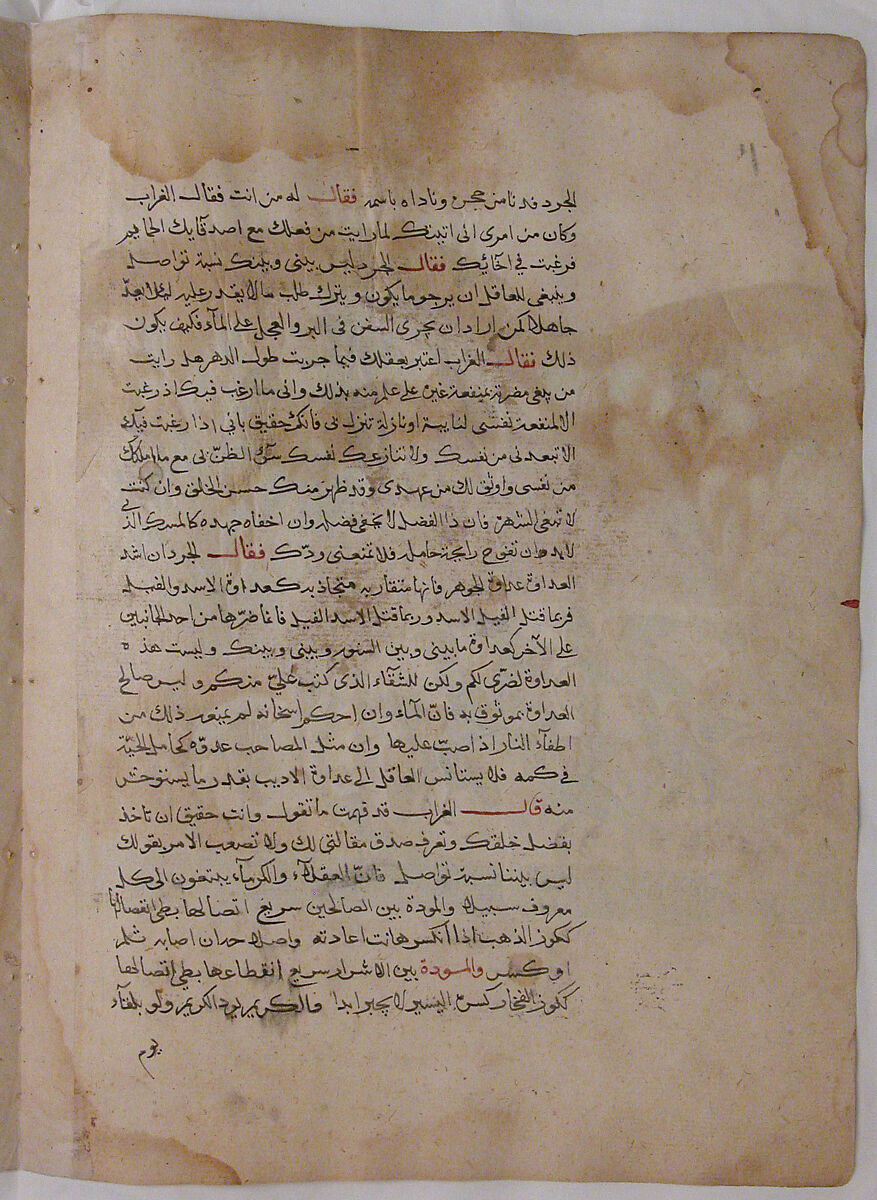 الجرد فدنا من جحره وناداه باسمه فقال له من انت فقال الغراب
وكان من امرى انى اتيتك لما رايت من فعلك مع اصدقآيك الحمايم
فرغبت في اخآئك فقال الجرد ليس بينى وبينك نسبة تواصل
وينبغى للعاقل ان يرجو ما يكون ويترك طلب ما لا يقدر عليه ليلا يعدّ
جاهلا كمن اراد ان يجرى السفن فى البر والعجل على المآء فكيف يكون
ذلك فقال الغراب اعتبر بعقلك فيما جربت طول الدهر هل رايت
من يبغى مضرته بمنفعة غيره على علم منه بذلك وانى ما ارغب فيك اذ رغبت
الا لمنفعة نفسى لنايبة او نازلة تنزل بى فانك حقيق بانى اذا رغبت فيك
الا تبعدنى من نفسك ولا تنازعك نفسك سوء الظنّ بى مع ما املكك
من نفسى واوثق لك من عهدى وقد ظهر منك حسن الخلق وان كنت
لا تبغى اشتهاره فان ذا الفضل لا يخفى فضله وان اخفاه جهده كالمسك الذى
لابد ان تفوح رايحة حامله فلا تمنعنى ودّك فقال الجرد ان اشد
العداوة عداوة الجوهر فانها متقاربه متجاذبه كعداوة الاسد والفيل
فربما قتل الفيل الاسد وربما قتل الاسد الفيل فانما ضرّها من احد الجانبين
على الآخر كعداوة ما بينى وبين السنور وبينى وبينك وليست هذه
العداوة لضرّى لكم ولكن للشقآء الذى كتب علىّ منكم وليس صالح
العداوة بموثوق به فانّ المآء وان احكم اسخانه لم يمنعه ذلك من
اطفآء النار اذا صبّ عليها وان مثل المصاحب عدوّه كحامل الحيّة
فى كمه فلا يستانس العاقل الى عداوة الاديب بقدر ما يستوحش
منه قال الغراب قد فهمت ما تقول وانت حقيق ان تاخذ
بفضل خلقك وتعرف صدق مقالتى لك ولا تصعب الامر بقولك
ليس بيننا نسبة تواصل فانّ العقلآء والكرمآء يبتغون الى كل
معروف سبيلا والمودة بين الصالحين سريع اتصالها بطى انفصالها
ككوز الذهب اذا انكسر هانت اعادته واصلاحه ان اصابه ثلم
او كسر والمودة بين الاشرار سريع انقطاعها بطى اتصالها
ككوز الفخار كسره اليسير لا يجبر ابدا والكريم يود الكريم ولو بلقآء
يوم